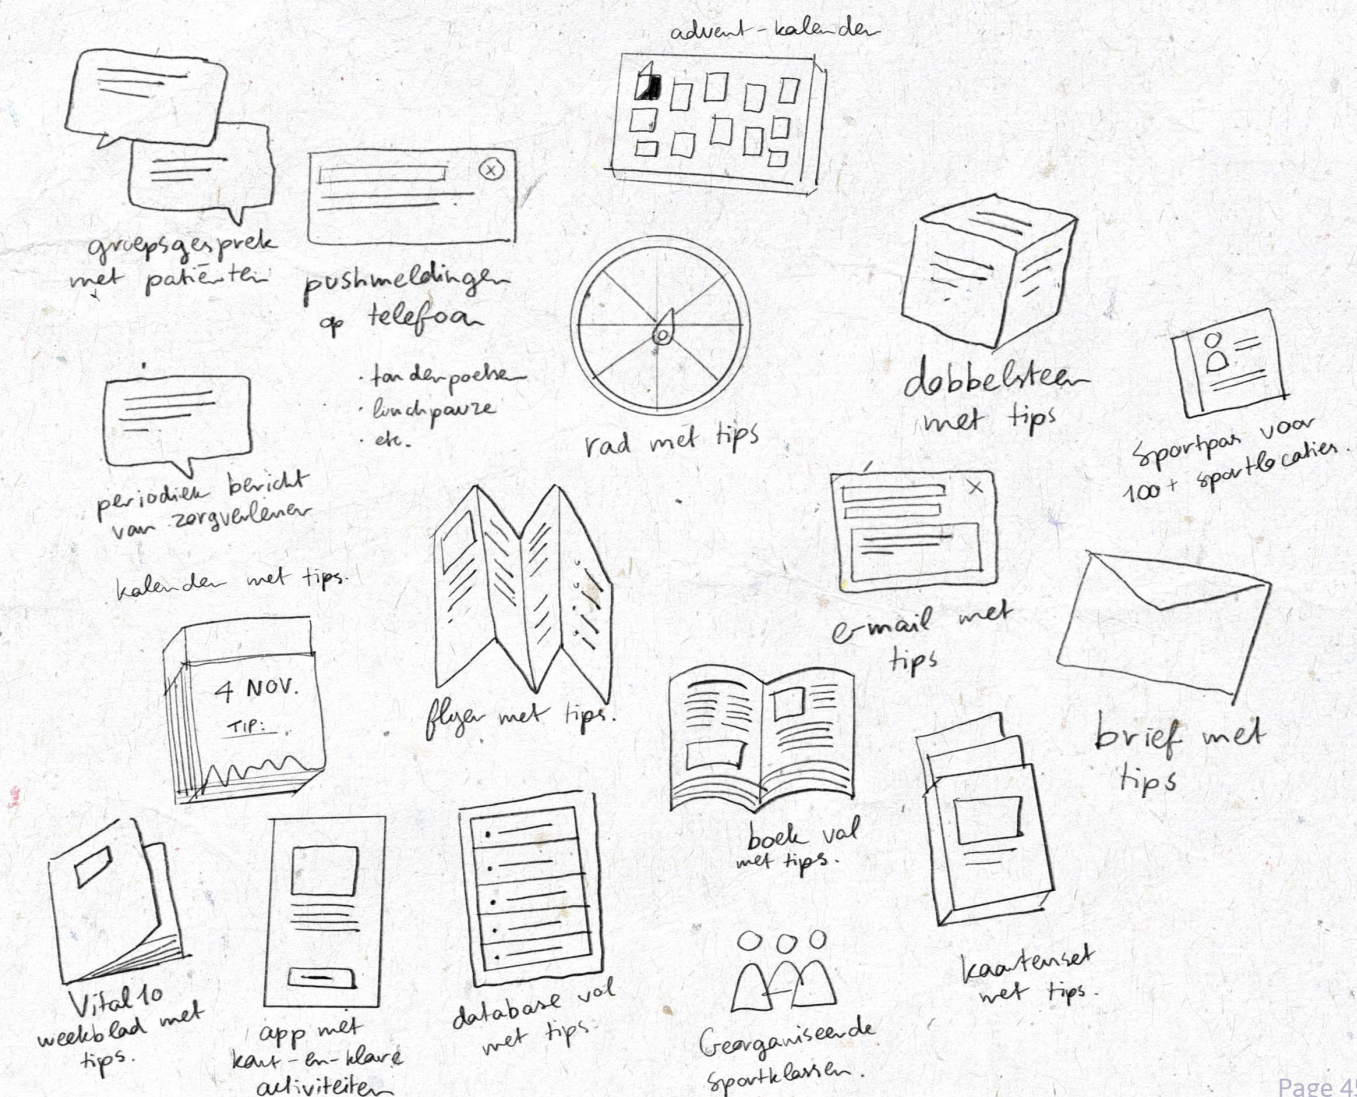 advent-kalender
groepsgesprek
met patiënten
pushmeldingen
op telefoon
· tandenpoetsen
· lunchpauze
· etc.
rad met tips
dobbelsteen
met tips
Sportpas voor
100+ sportlocaties.
periodiek bericht
van zorgverlener
kalender met tips.
4 NOV.
TIP:
flyer met tips.
e-mail met
tips
brief met
tips
boek vol
met tips.
kaartenset
met tips.
Vital10
weekblad met
tips.
app met
kant-en-klare
activiteiten
database vol
met tips.
Georganiseerde
sportklassen.
Page 45